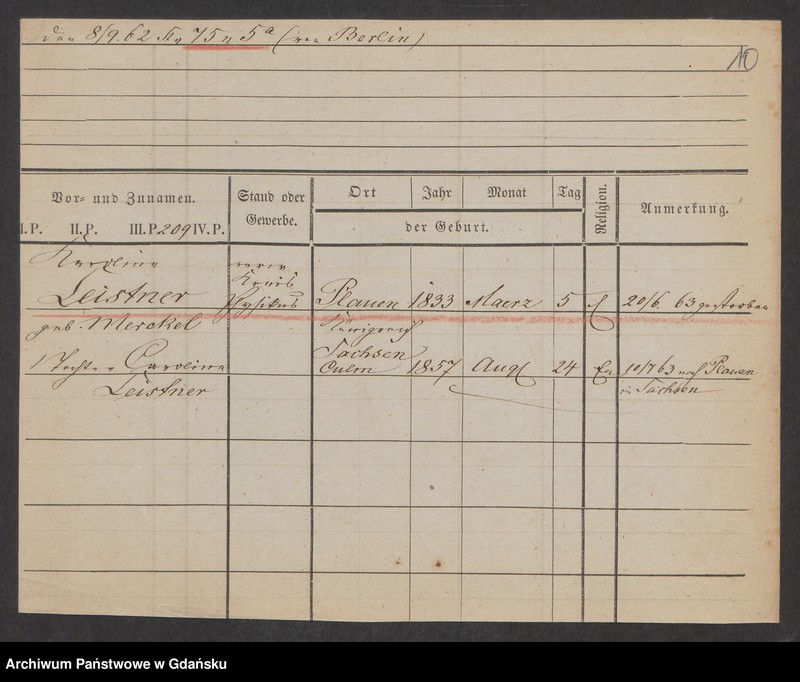 den 8/9.62 75 n 5a (von Berlin)
10
Vor- und Zunamen.
Stand oder Gewerbe.
Ort Jahr Monat Tag
der Geburt.
Religion.
Anmerkung.
I.P. II.P. III.P. 209 IV.P.
Karoline
Leistner
geb. Merckel
verw.
Kreis
Physikus
Plauen 1833 Maerz 5 20/6 63 gestorben
Königreich
Sachsen
1 Tochter Caroline
Leistner
Culm 1857 Aug 24 Ev 10/7 63 nach Plauen
in Sachsen
Archiwum Państwowe w Gdańsku